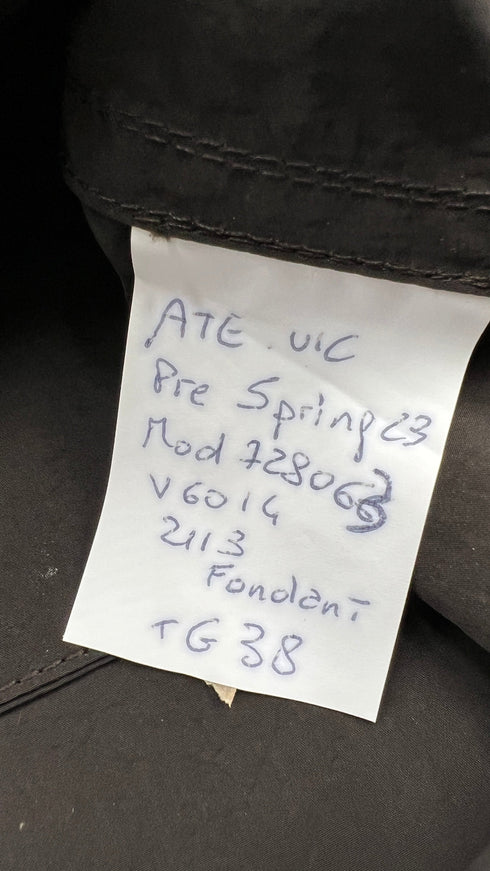 ATE. VIC
Pre Spring 23
Mod 728063
V6014
2113
Fondant
TG 38